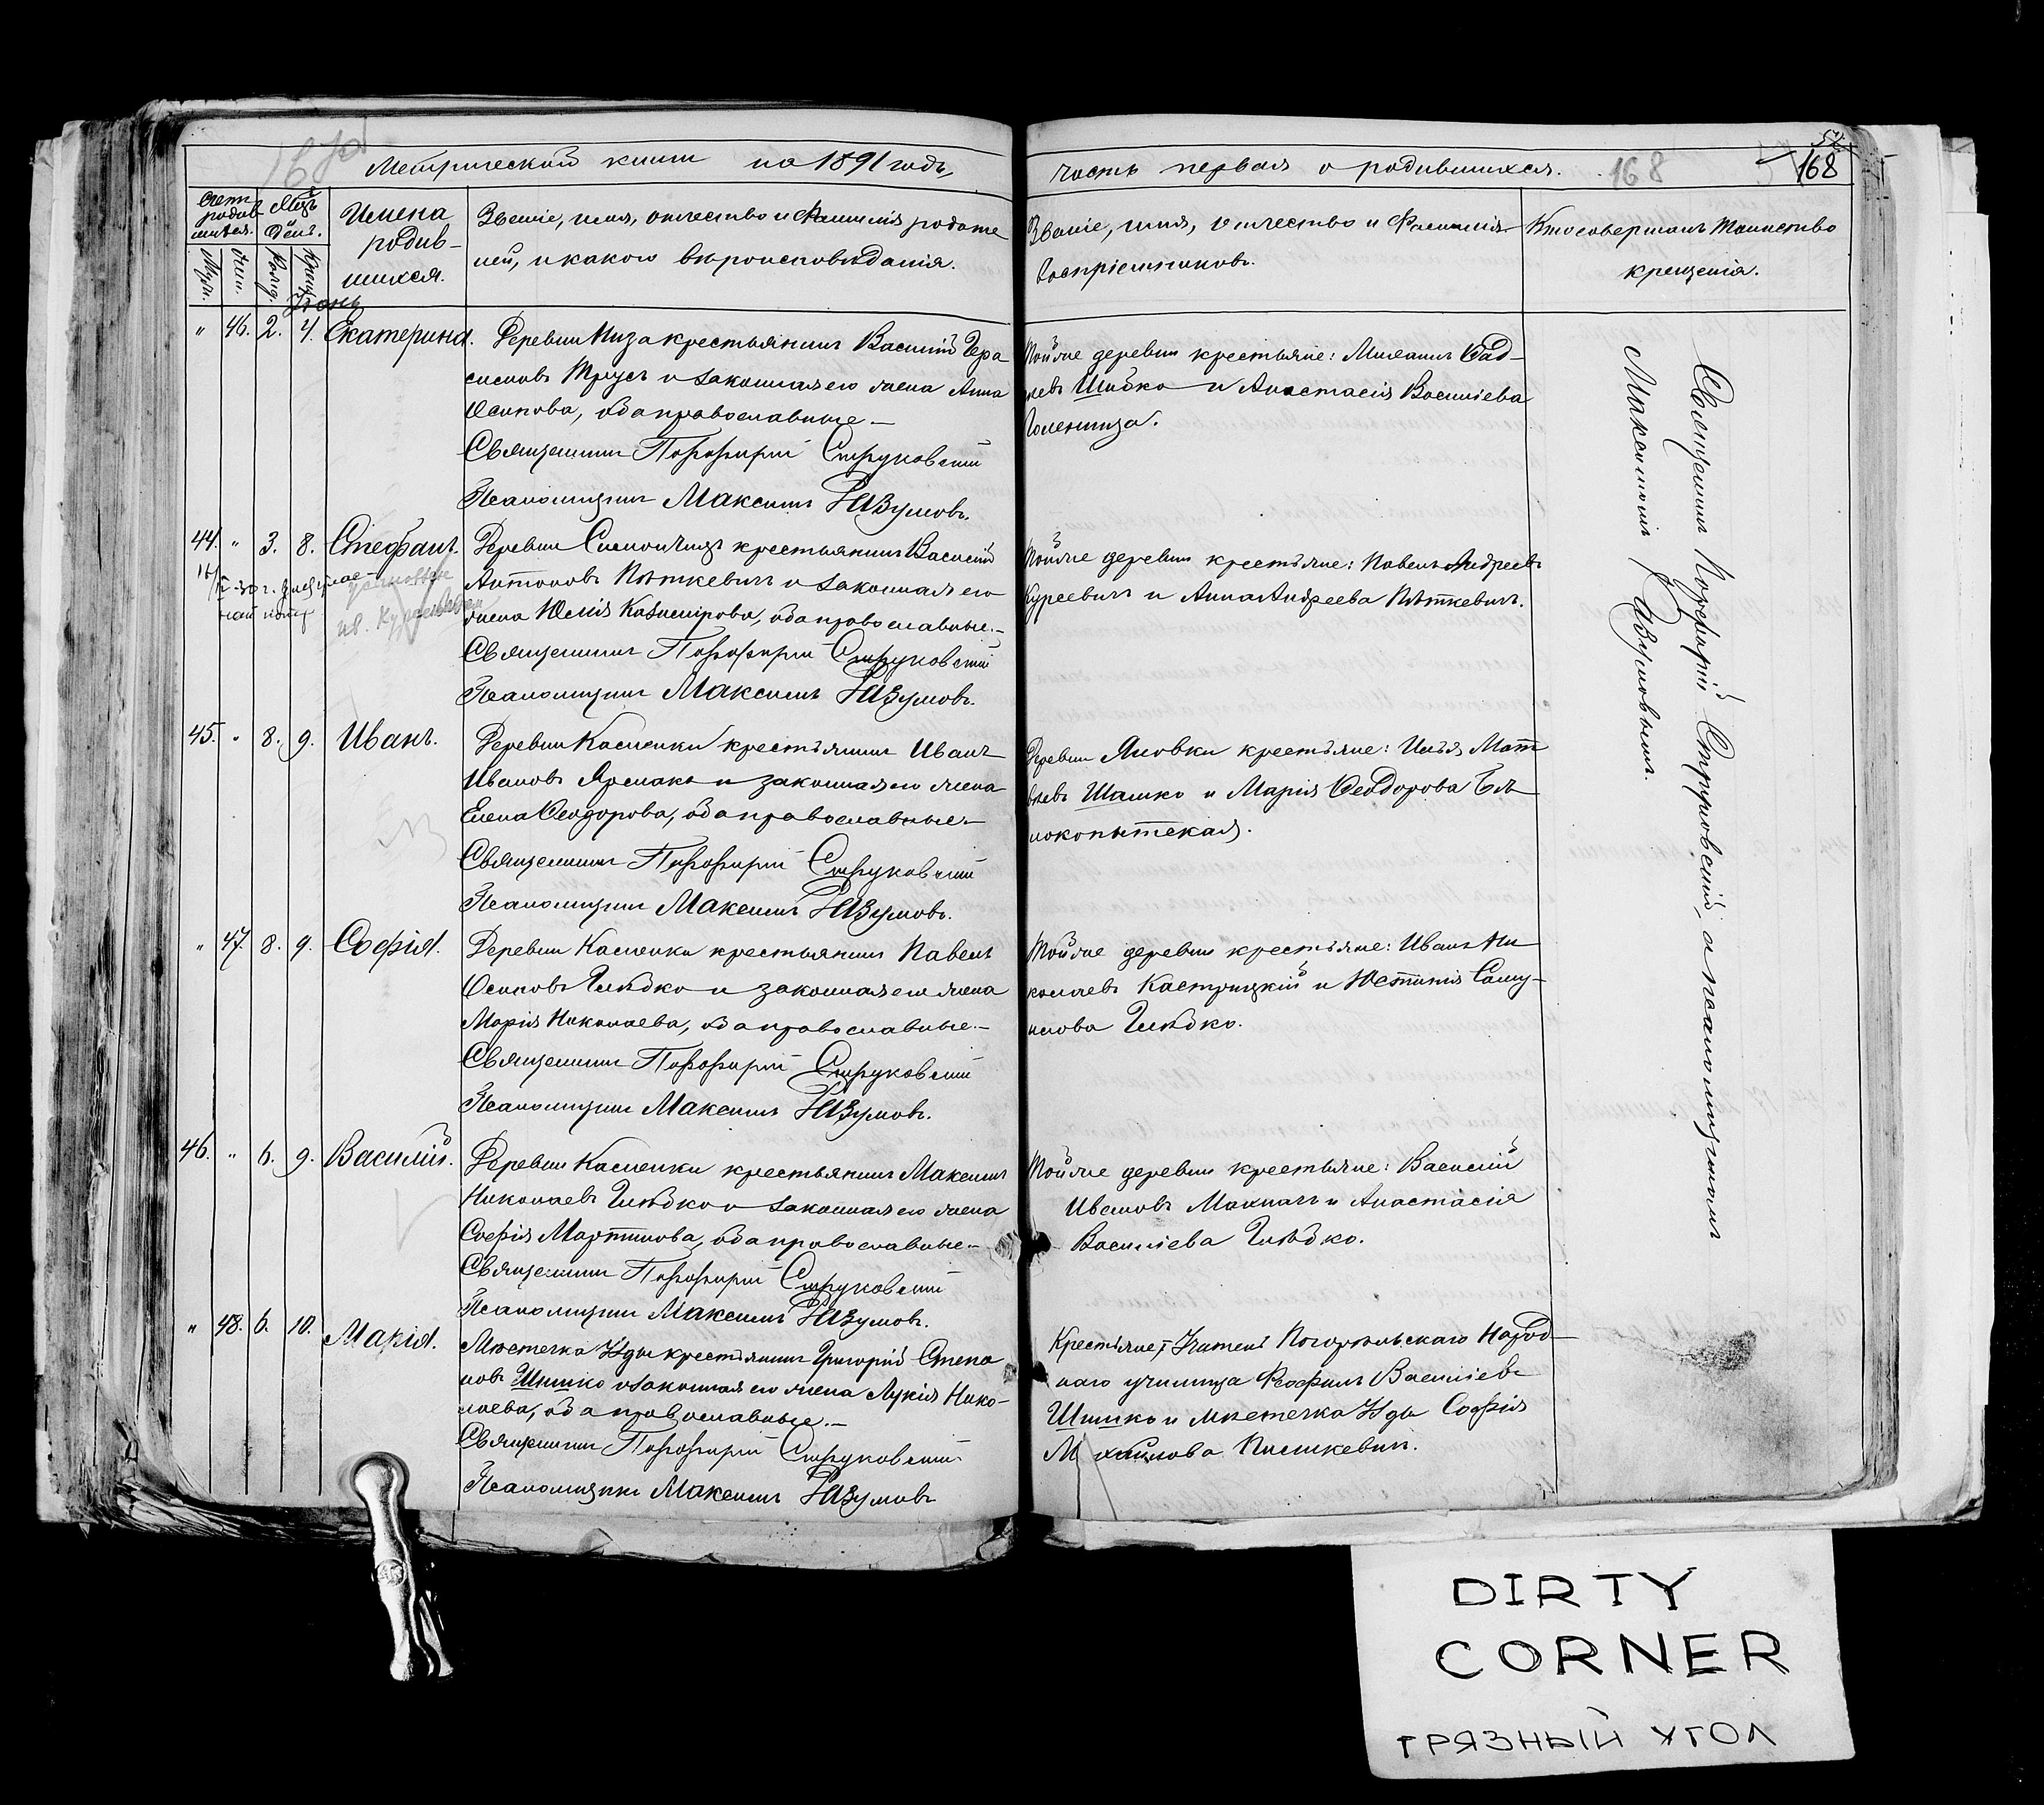 Метрической книги на 1891 годъ,
часть первая о родившихся.
168
168
Счетъ родив-шихся.
Мцъ и день.
Имена
родив-
шихся.
Званіе, имя, отчество и фамилія родите
лей, и какого вѣроисповѣданія.
Званіе, имя, отчество и фамилія
воспріемниковъ.
Кто совершалъ таинство
крещенія.
Муж.
Жен.
Рожд.
Крещ.
Іюнь
" 46. 2. 4. Екатерина.
Деревни Низа крестьянинъ Василій Гера
симовъ Трусъ и законная его жена Анна
Осипова, оба православные.—
Священникъ Порфирій Струковскій
Псаломщикъ Максимъ Разумовъ.
Тойже деревни крестьяне:
Шибко и Анастасія Василіева
44. " 3. 8. Стефанъ.
Деревни крестьянинъ Василій
Антоновъ Пѣткевичъ и законная его
жена Юлія Казимірова, оба православные.—
Священникъ Порфирій Струковскій
Псаломщикъ Максимъ Разумовъ.
Тойже деревни крестьяне: Павелъ Андреевъ
Куреевичъ и Анна Андреева Пѣткевичъ.
45. " 8. 9. Иванъ.
Деревни Каменки крестьянинъ Иванъ
Ивановъ Ярмакъ и законная его жена
Елена Ѳеодорова, оба православные.—
Священникъ Порфирій Струковскій
Псаломщикъ Максимъ Разумовъ.
Деревни Яновки крестьяне: Илья Мат
вѣевъ Шашко и Марія Ѳеодорова Бѣ
локопытская.
" 47. 8. 9. Софія.
Деревни Каменки крестьянинъ Павелъ
Осиповъ Глѣдко и законная его жена
Марія Николаева, оба православные.—
Священникъ Порфирій Струковскій
Псаломщикъ Максимъ Разумовъ.
Тойже деревни крестьяне: Иванъ Ни
колаевъ Кастрицкій и Юстинія Саму-
илова Глѣдко.
46. " 6. 9. Василій.
Деревни Каменки крестьянинъ Максимъ
Николаевъ Глѣдко и законная его жена
Софія Мартинова, оба православные.—
Священникъ Порфирій Струковскій
Псаломщикъ Максимъ Разумовъ.
Тойже деревни крестьяне: Василій
Ивановъ Махначъ и Анастасія
Василіева Глѣдко.
" 48. 6. 10. Марія.
Мѣстечка Узды крестьянинъ Григорій Степа
новъ Шишко и законная его жена Лукія Нико-
лаева, оба православные.—
Священникъ Порфирій Струковскій
Псаломщикъ Максимъ Разумовъ
Крестьяне, Учитель Погорѣльскаго Народ-
наго училища Ѳеофилъ Василіевъ
Шишко и мѣстечка Узды Софія
Михайлова Пашкевичъ.
Священникъ Порфирій Струковскій, съ псаломщикомъ
Максимомъ Разумовымъ.
DIRTY
CORNER
ГРЯЗНЫЙ УГОЛ